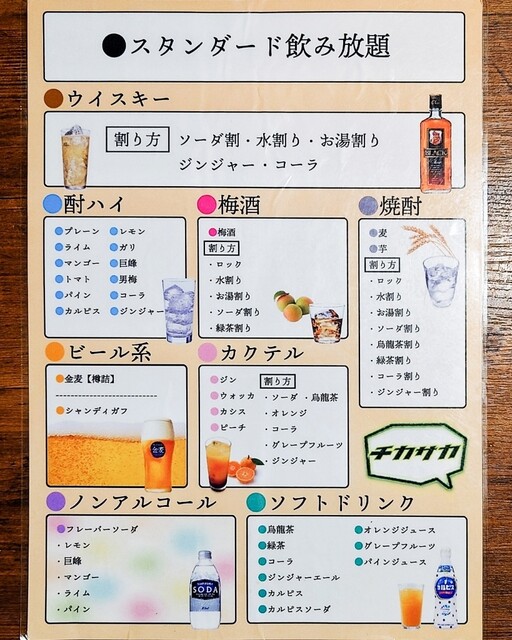 ●スタンダード飲み放題
●ウイスキー
割り方 ソーダ割・水割り・お湯割り
ジンジャー・コーラ
BLACK
●酎ハイ
●プレーン ●レモン
●ライム ●ガリ
●マンゴー ●巨峰
●トマト ●男梅
●パイン ●コーラ
●カルピス ●ジンジャー
●梅酒
●梅酒
割り方
・ロック
・水割り
・お湯割り
・ソーダ割り
・緑茶割り
●焼酎
●麦
●芋
割り方
・ロック
・水割り
・お湯割り
・ソーダ割り
・烏龍茶割り
・緑茶割り
・コーラ割り
・ジンジャー割り
●ビール系
●金麦【樽詰】
●シャンディガフ
金麦
●カクテル
●ジン
●ウォッカ
●カシス
●ピーチ
割り方
・ソーダ ・烏龍茶
・オレンジ
・コーラ
・グレープフルーツ
・ジンジャー
チカサカ
●ノンアルコール
●フレーバーソーダ
・レモン
・巨峰
・マンゴー
・ライム
・パイン
SODA
●ソフトドリンク
●烏龍茶
●緑茶
●コーラ
●ジンジャーエール
●カルピス
●カルピスソーダ
●オレンジジュース
●グレープフルーツ
●パインジュース
カルピス